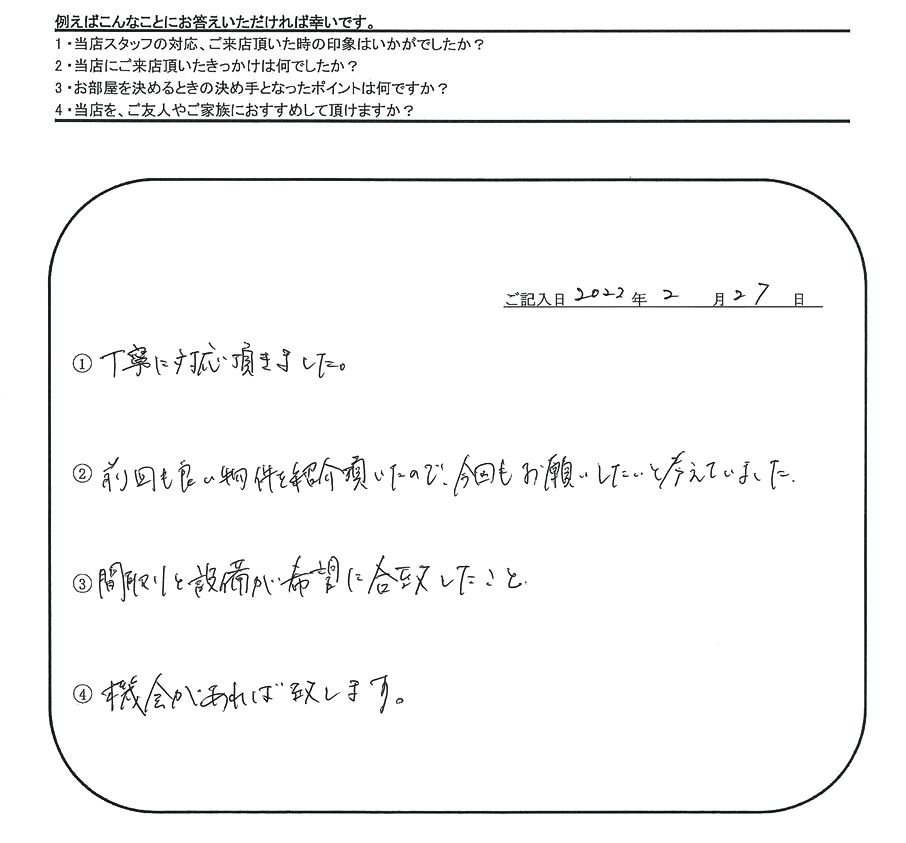 例えばこんなことにお答えいただければ幸いです。
1・当店スタッフの対応、ご来店頂いた時の印象はいかがでしたか？
2・当店にご来店頂いたきっかけは何でしたか？
3・お部屋を決めるときの決め手となったポイントは何ですか？
4・当店を、ご友人やご家族におすすめして頂けますか？
ご記入日 2022 年 2 月 27 日
① 丁寧に対応頂きました。
② 前回も良い物件を紹介頂いたので、今回もお願いしたいと考えていました.
③ 間取りと設備が希望に合致したこと.
④ 機会があれば致します。